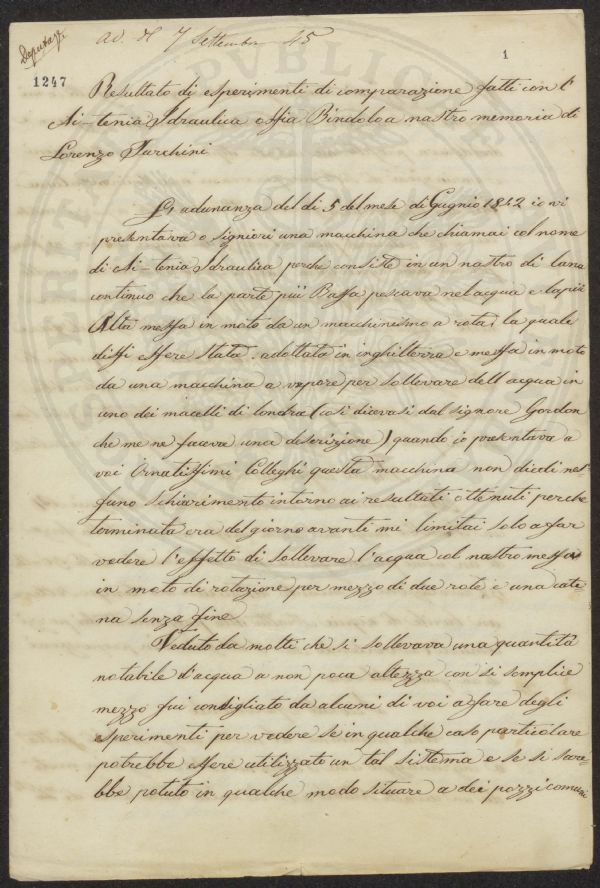 Deputaz.
ad. H 7 Settembre 45
1
1247
Resultato di esperimenti di comparazione fatti con l'
Ai-tenia Idraulica ossia Bindolo a nastro memoria di
Lorenzo Turchini
L'adunanza del di 5 del mese di Gugnio 1842 io vi
presentava o signiori una macchina che chiamai col nome
di Ai-tenia Idraulica perche consiste in un nastro di lana
continuo che la parte più Bassa pescava nel acqua e la più
Alta messa in moto da un macchinismo a rota, la quale
dissi essere stata adottata in inghilterra e messa in moto
da una macchina a vapore per sollevare dell acqua in
uno dei macelli di londra (cosi dicevasi dal signore Gordon
che me ne faceva una descrizione) quando io presentava a
voi Ornatissimi Colleghi questa macchina non diedi nes-
suno schiarimento intorno ai resultati ottenuti perche
terminata era del giorno avanti mi limitai solo a far
vedere l'effetto di sollevare l'acqua col nastro messo
in moto di rotazione per mezzo di due rote e una cate-
na senza fine
Veduto da molti che si sollevava una quantità
notabile d'acqua a non poca altezza con si semplice
mezzo fui consigliato da alcuni di voi a fare degli
esperimenti per vedere se in qualche caso particolare
potrebbe essere utilizzato un tal sistema e se si sare-
bbe potuto in qualche modo situare a dei pozzi comuni